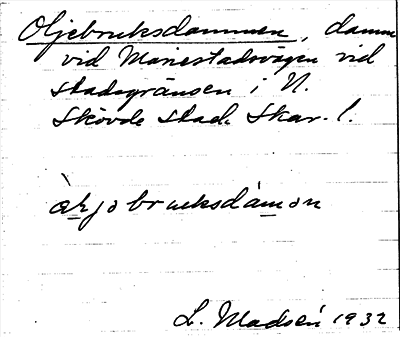 Oljebruksdammen, damm
vid Mariestadsvägen vid
stadsgränsen i N.
Skövde stad. Skar. l.
òljobruksdàmon
L. Madsén 1932